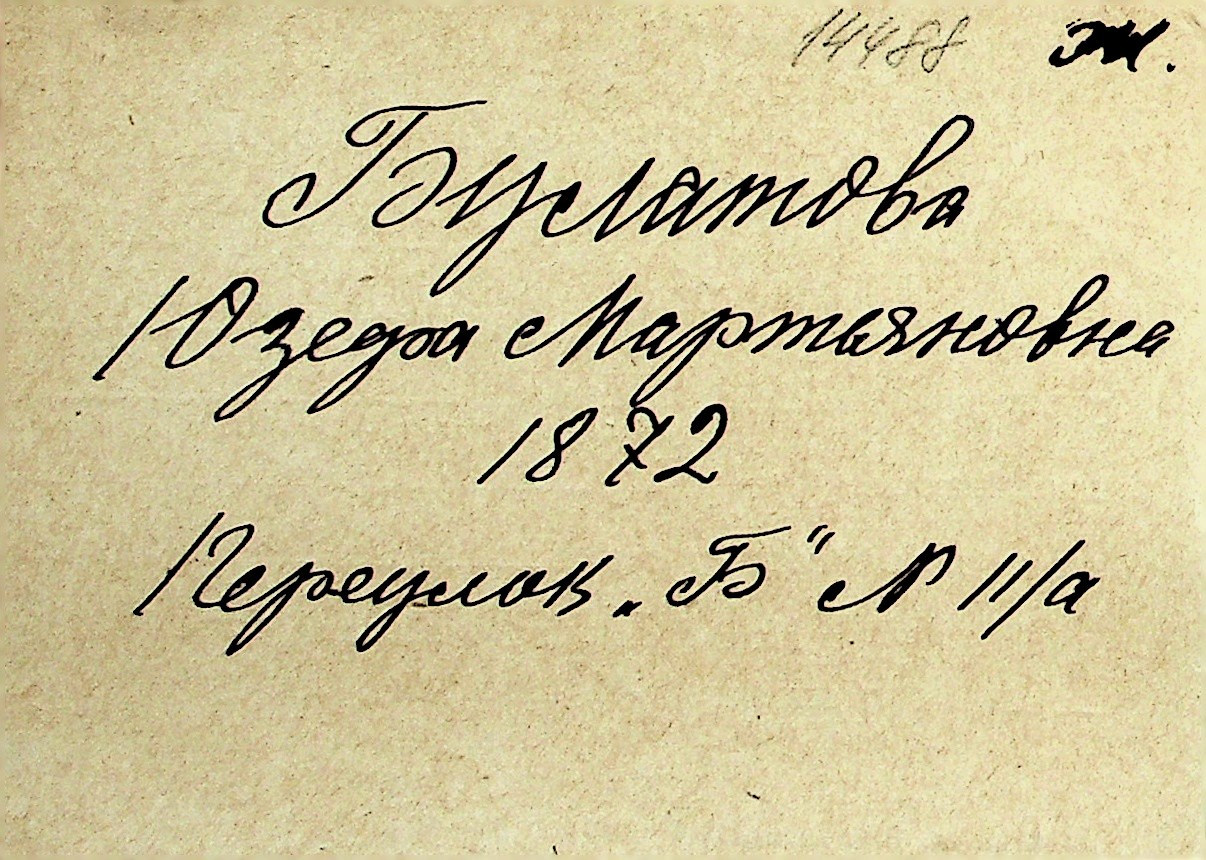 14488 Ж.
Булатова
Юзефа Мартьяновна
1872
Переулок „Б“ № 11/а